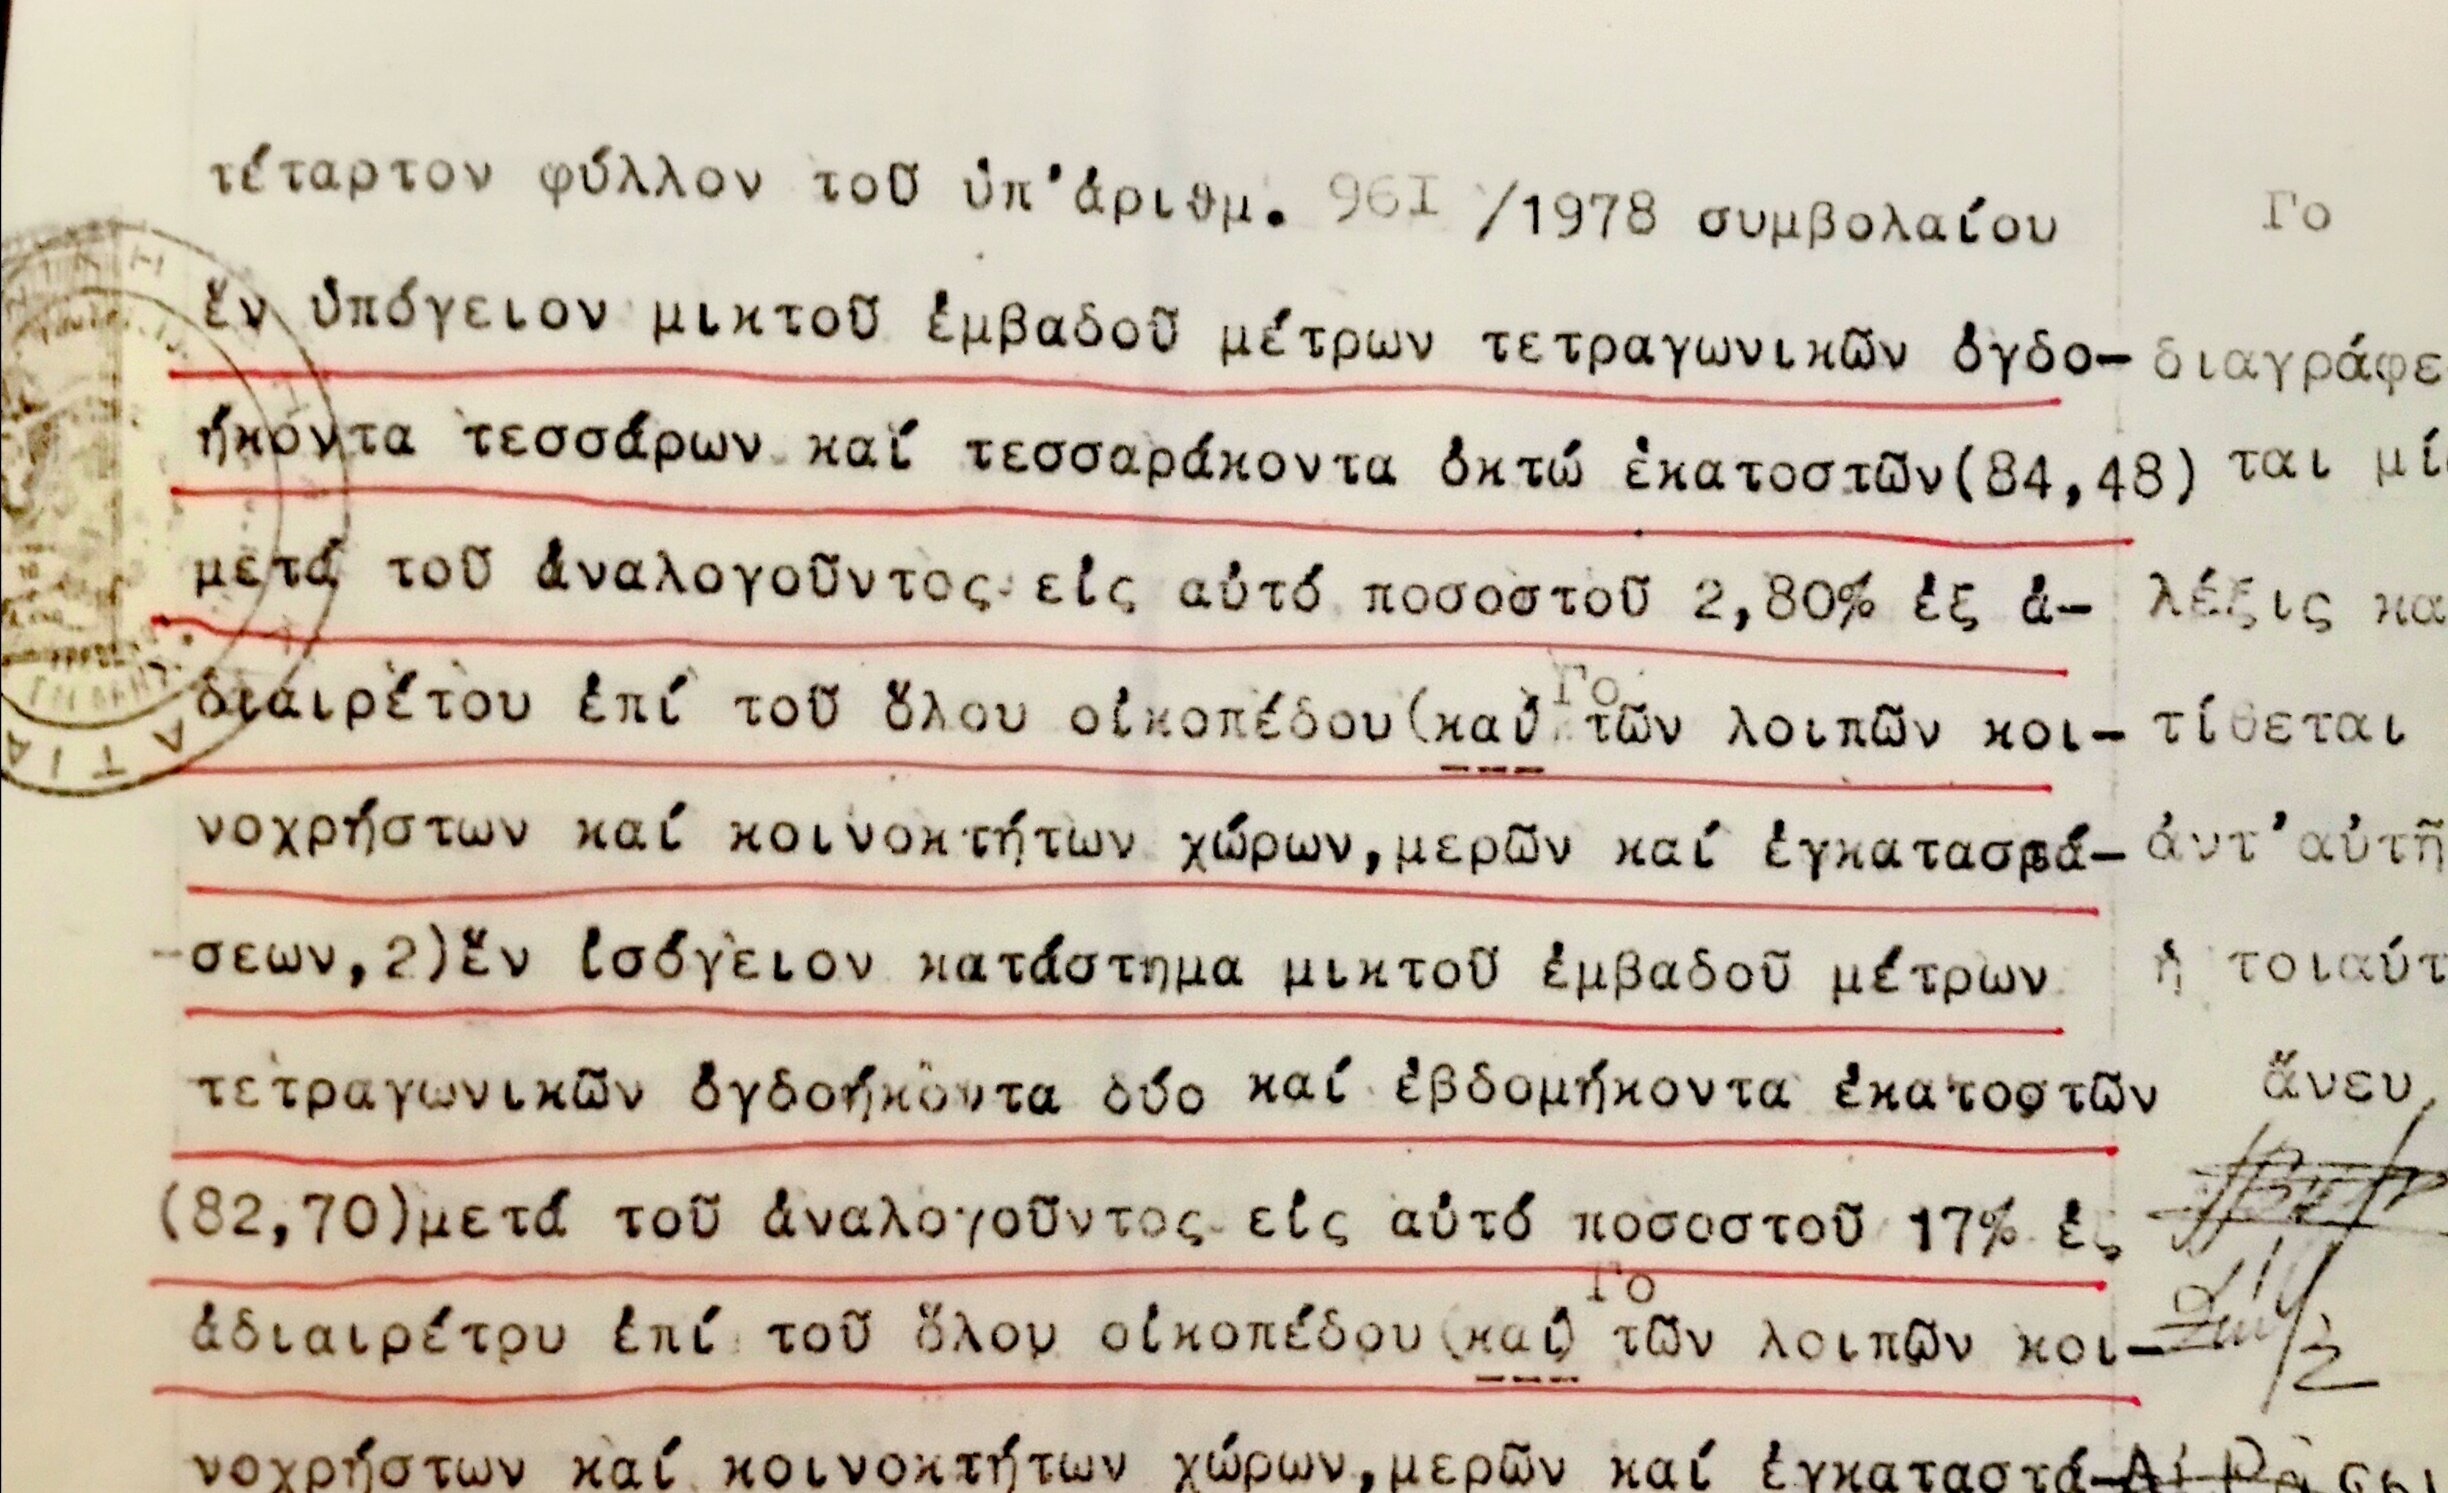 τέταρτον φύλλον τοῦ ὑπ'ἀριθμ. 96I /1978 συμβολαίου
Γο
ἕν ὑπόγειον μικτοῦ ἐμβαδοῦ μέτρων τετραγωνικῶν ὀγδο-
διαγράφε
ήκοντα τεσσάρων καί τεσσαράκοντα ὀκτώ ἑκατοστῶν(84,48)
ται μί
μετά τοῦ ἀναλογοῦντος εἰς αὐτό ποσοστοῦ 2,80% ἐξ ἀ-
λέξις κα
Γο
διαιρέτου ἐπί τοῦ ὅλου οἰκοπέδου(καί τῶν λοιπῶν κοι-
τίθεται
νοχρήστων καί κοινοκτήτων χώρων,μερῶν καί ἐγκαταστά-
ἀντ'αὐτῆ
σεων,2)ἕν ἰσόγειον κατάστημα μικτοῦ ἐμβαδοῦ μέτρων
ἡ τοιαύτ
τετραγωνικῶν ὀγδοήκοντα δύο καί ἑβδομήκοντα ἑκατοστῶν
ἄνευ
(82,70)μετά τοῦ ἀναλογοῦντος εἰς αὐτό ποσοστοῦ 17% ἐξ
Γο
ἀδιαιρέτου ἐπί τοῦ ὅλου οἰκοπέδου(καί) τῶν λοιπῶν κοι-
νοχρήστων καί κοινοκτήτων χώρων,μερῶν καί ἐγκαταστά-